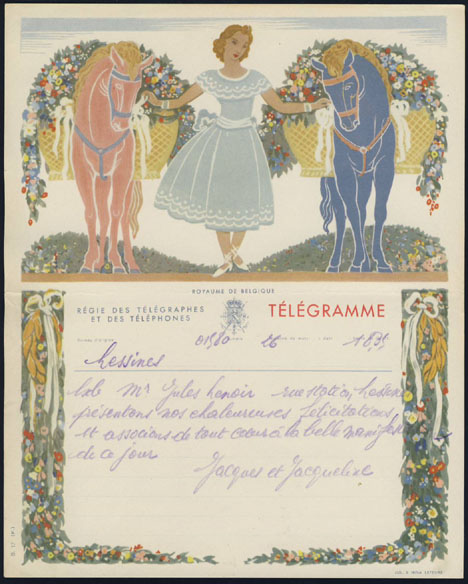 ROYAUME DE BELGIQUE
RÉGIE DES TÉLÉGRAPHES
ET DES TÉLÉPHONES
TÉLÉGRAMME
26
Messines
Mr Jules Lenoir rue station
présentons nos chaleureuses félicitations
et associons de tout cœur à la belle
de ce jour
Jacques et Jacqueline